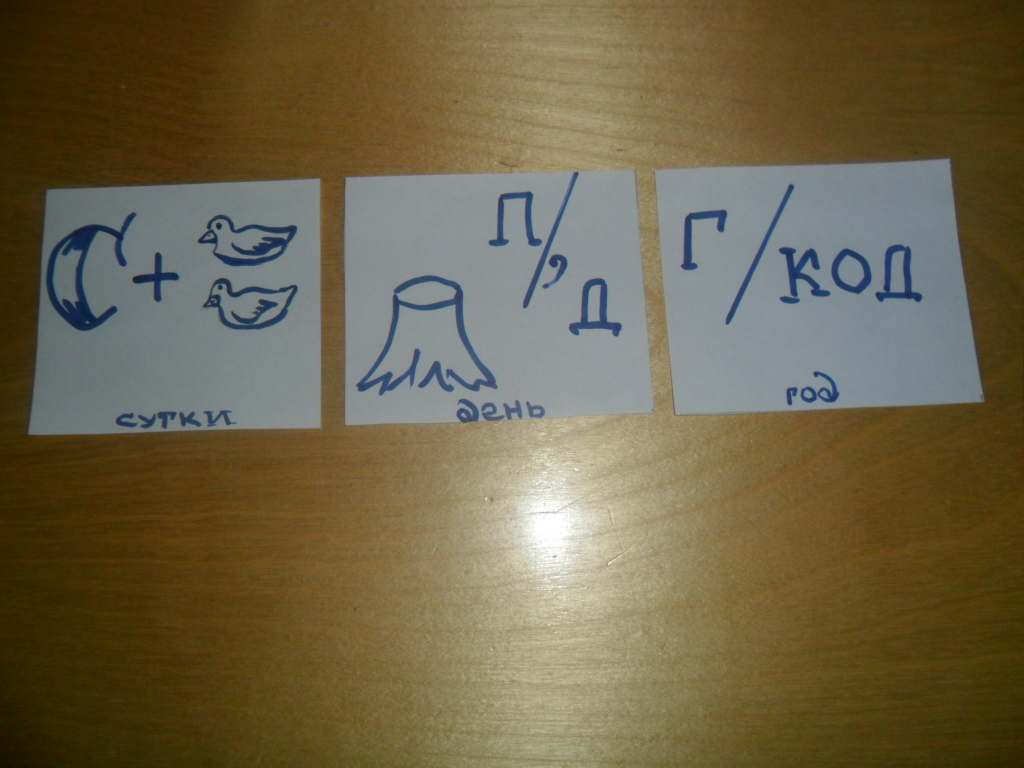 С +
сутки
П/,Д
день
Г/код
год